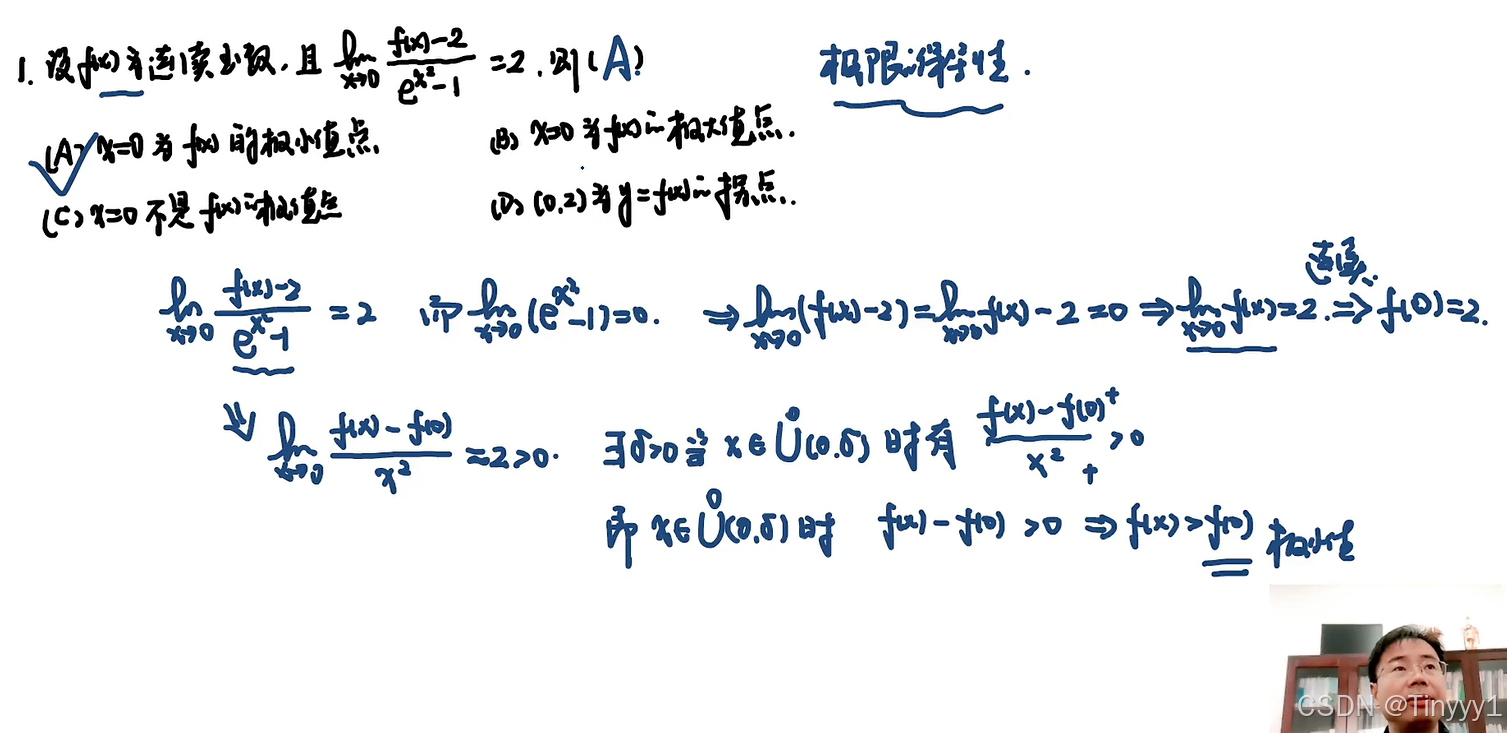 1. 设f(x)为连续函数,且 lim x→0 (f(x)-2)/(e^(x²)-1) =2,则(A)
极限的保号性.
(A) x=0为f(x)的极小值点. (B) x=0为f(x)的极大值点.
(C) x=0不是f(x)的极值点 (D) (0,2)为y=f(x)的拐点.
lim x→0 (f(x)-2)/(e^(x²)-1) =2 即 lim x→0 (e^(x²)-1)=0. ⇒ lim x→0 (f(x)-2)=lim x→0 f(x)-2=0 ⇒ lim x→0 f(x)=2. 连续 ⇒ f(0)=2.
⇓ lim x→0 (f(x)-f(0))/x² =2>0. ∃δ>0当x∈Ů(0,δ)时有 (f(x)-f(0))⁺/x² ₊ >0
即 x∈Ů(0,δ)时 f(x)-f(0)>0 ⇒ f(x)>f(0) 极小值
CSDN @Tinyyy1